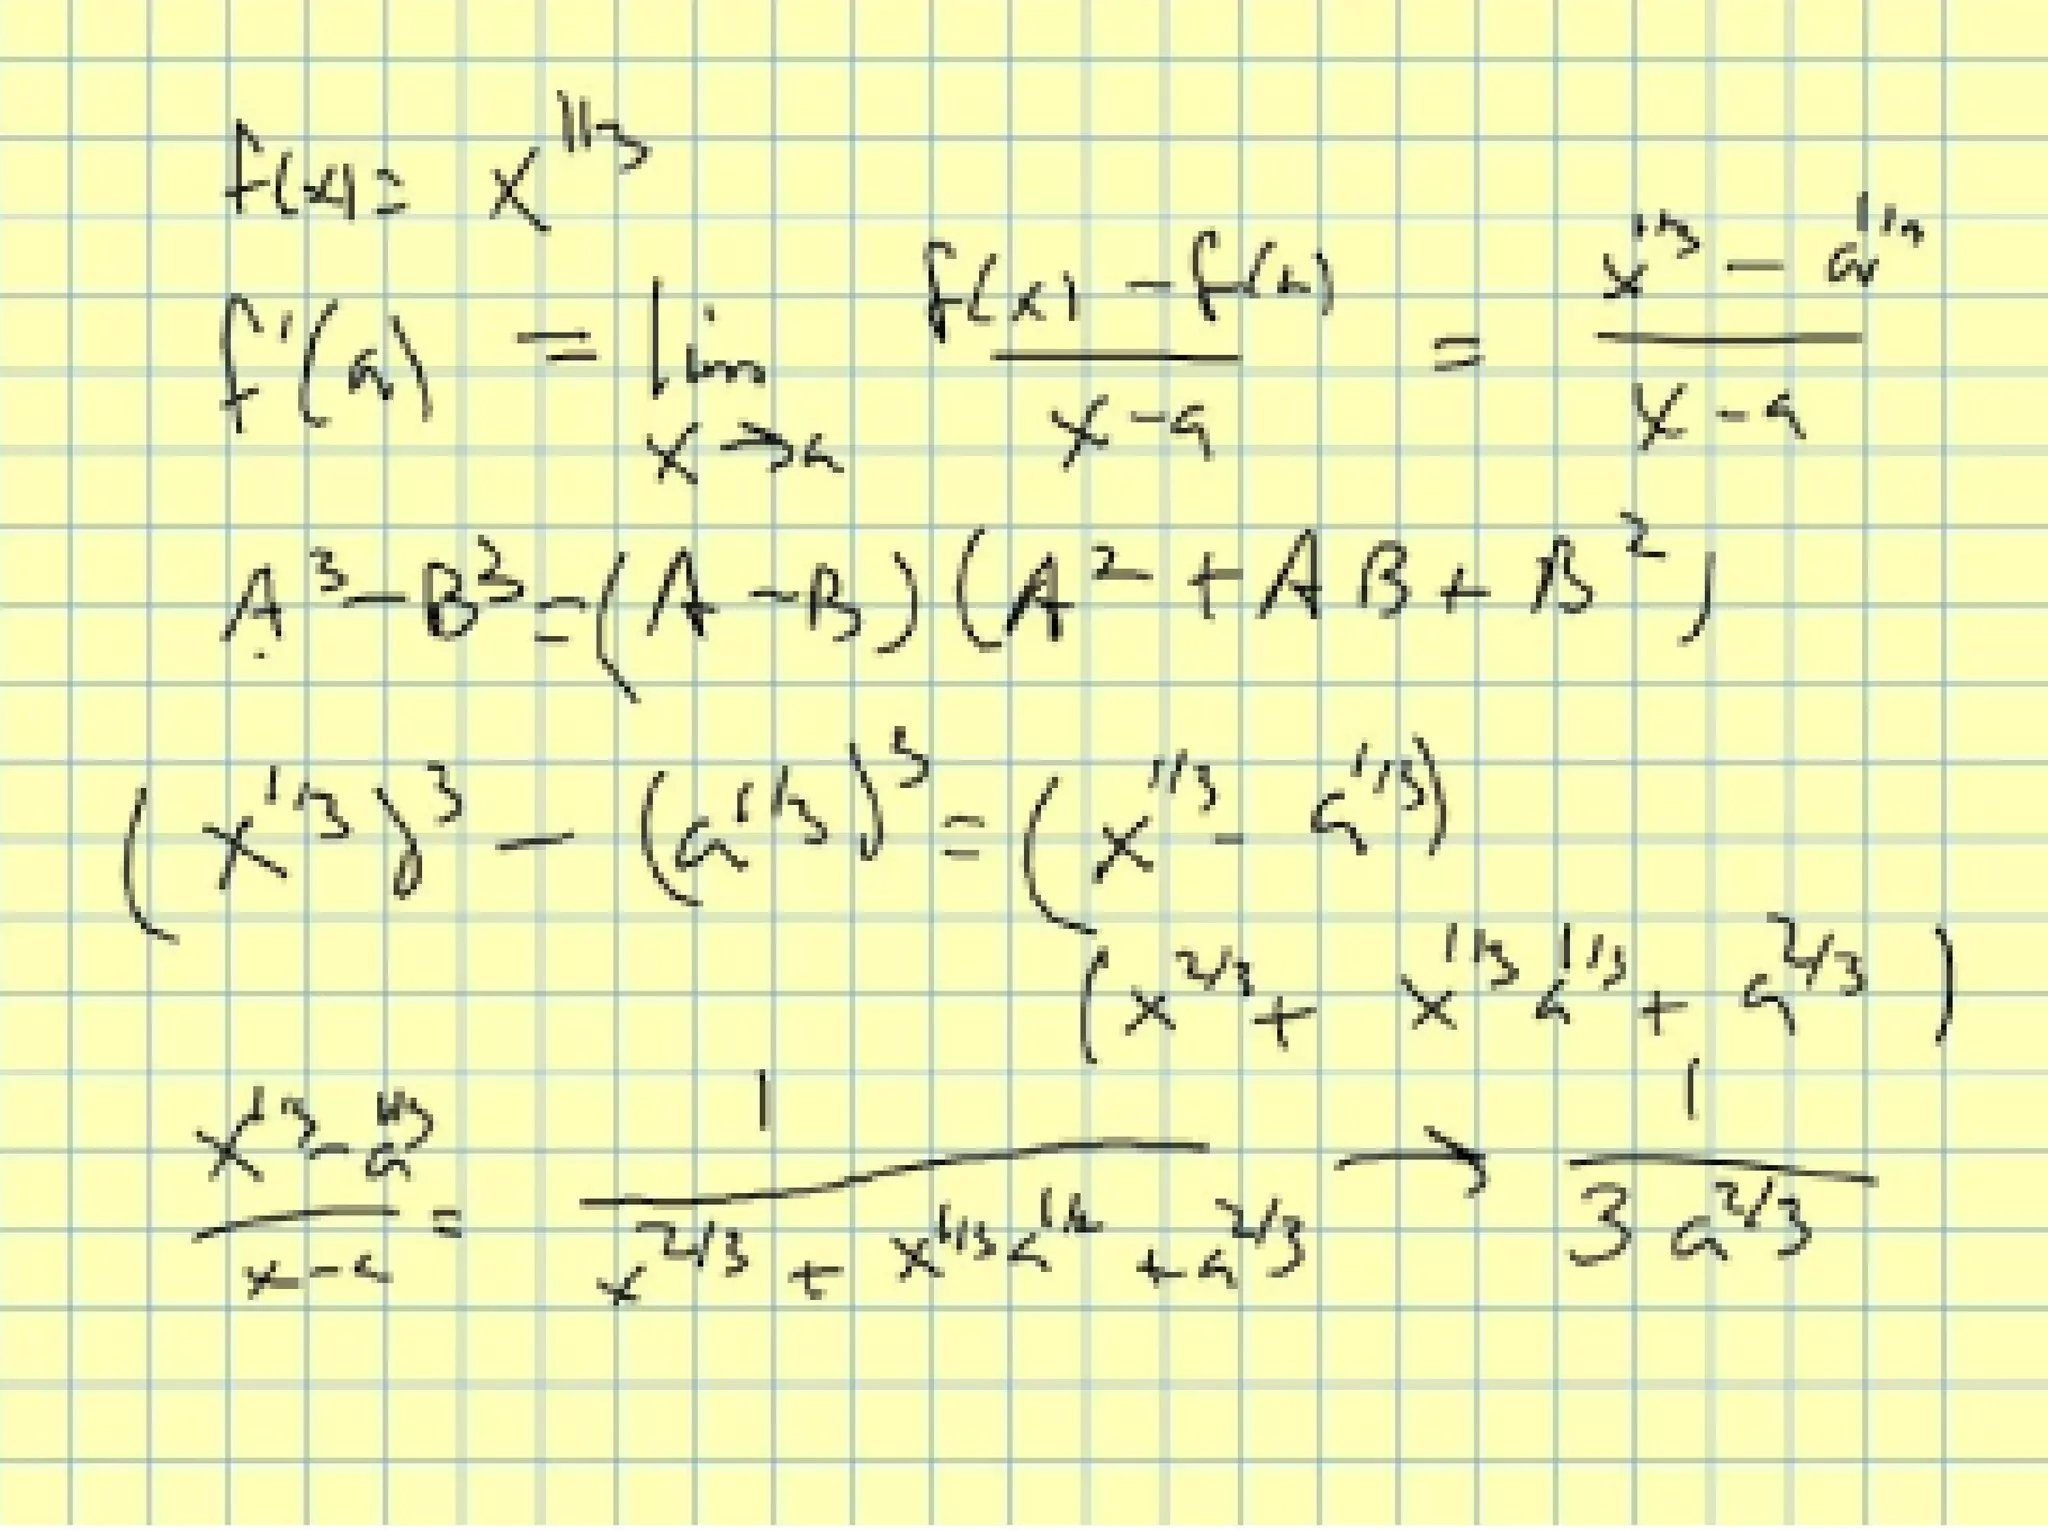 f(x) = x^1/3
f'(a) = lim x→a (f(x) - f(a))/(x-a) = (x^1/3 - a^1/3)/(x-a)
A^3 - B^3 = (A - B)(A^2 + AB + B^2)
(x^1/3)^3 - (a^1/3)^3 = (x^1/3 - a^1/3)
(x^2/3 + x^1/3 a^1/3 + a^2/3)
(x^1/3 - a^1/3)/(x-a) = 1/(x^2/3 + x^1/3 a^1/3 + a^2/3) → 1/(3 a^2/3)